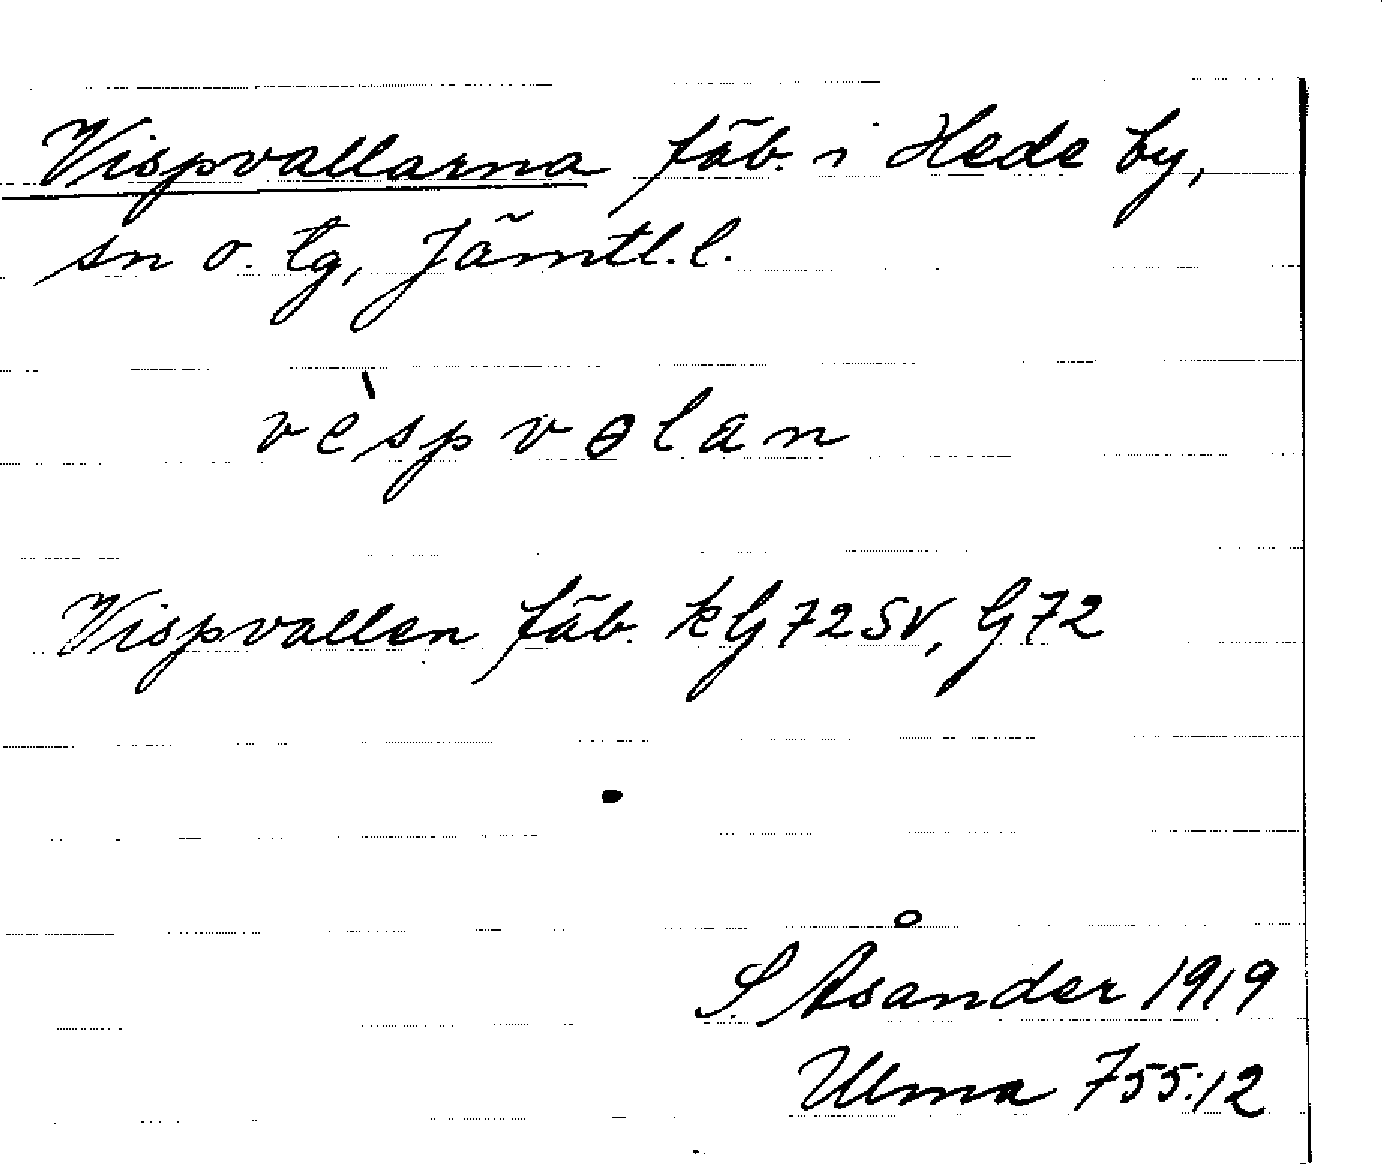 Vispvallarna fäb. i Hede by,
sn o. tg, Jämtl. l.
vèspvɵlan
Vispvallen fäb. kG72SV, G72
S. Åsander 1919
Ulma 755:12